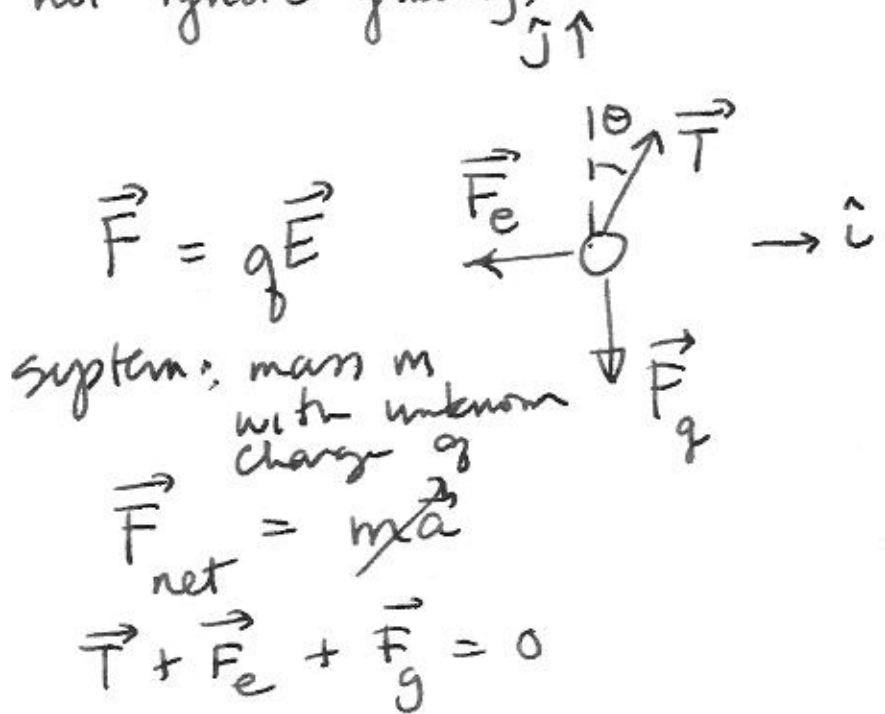 not ignore gravity,
ĵ ↑
θ
T⃗
F⃗ₑ
→ î
F⃗ = qE⃗
F⃗_g
system: mass m
with unknown
charge q
F⃗_net = ma⃗
T⃗ + F⃗ₑ + F⃗_g = 0